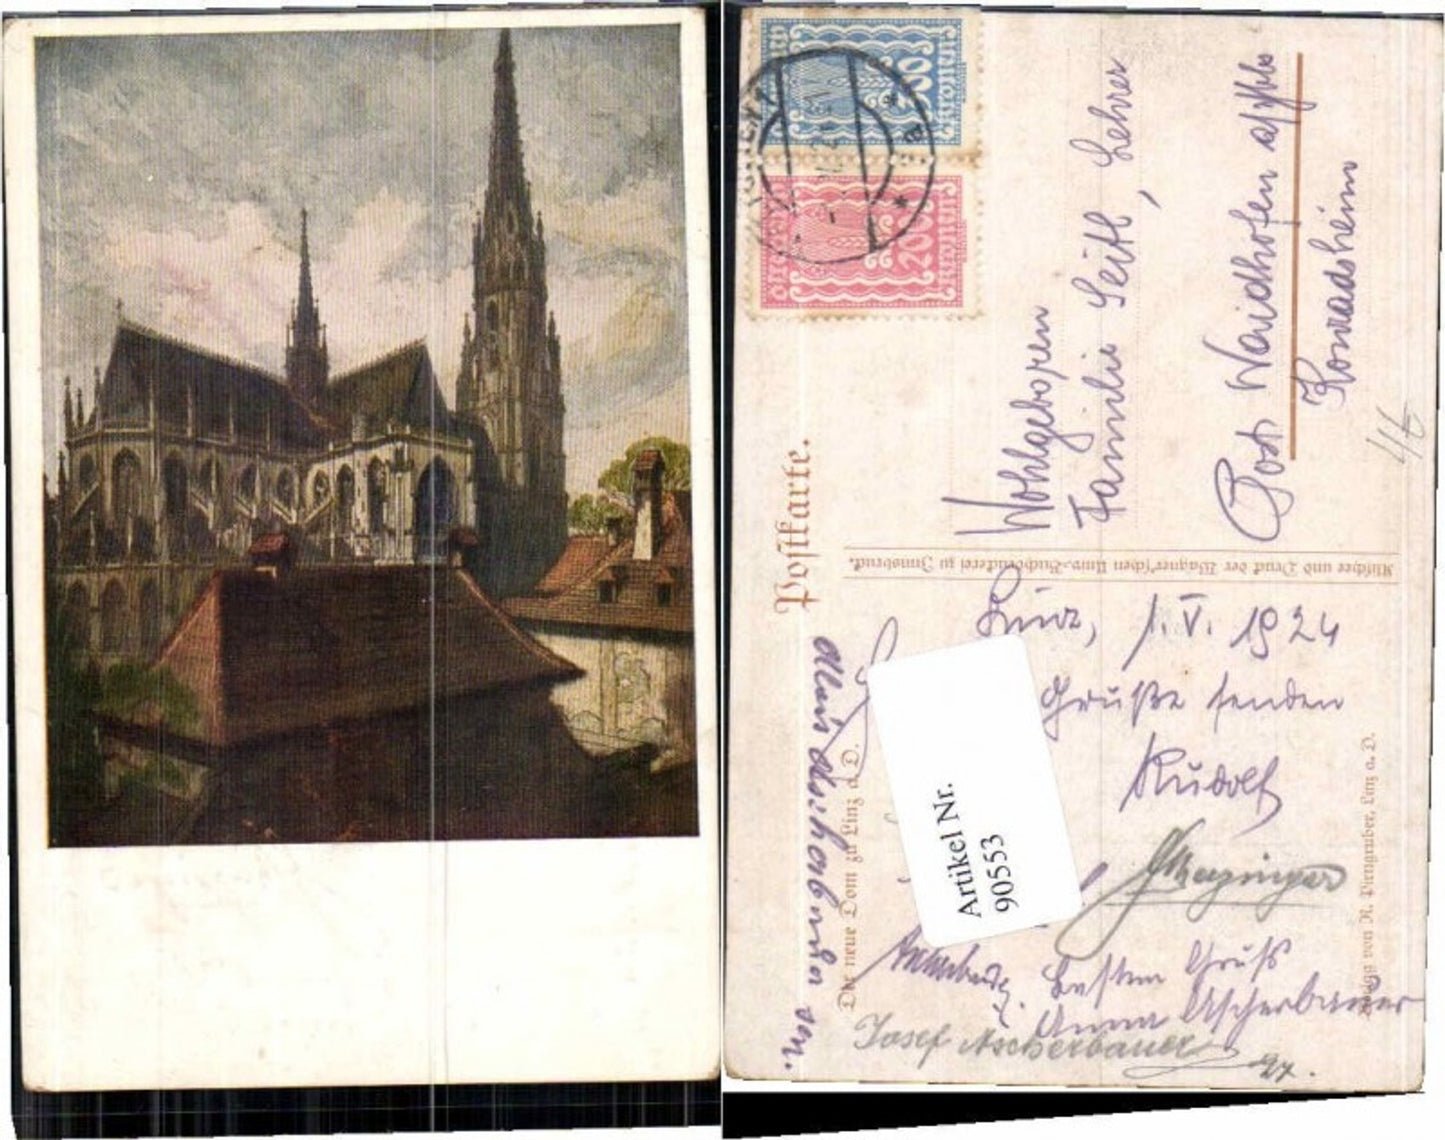 300
Kronen
2000
Kronen
Postkarte.
Wohlgeboren
Familie Seitl, Lehrer
Post Waidhofen a/Ybbs
Konradsheim
Klischee und Druck der Wagner'schen Univ.-Buchdruckerei zu Innsbruck.
Linz, 1. V. 1924
Grüße senden
Rudolf
Besten Gruß
Anna Ascherbauer
Josef Ascherbauer
Alois Ascherbauer sen.
Der neue Dom zu Linz a. D.
Verlag von R. Pirngruber, Linz a. D.
Artikel Nr.
90553